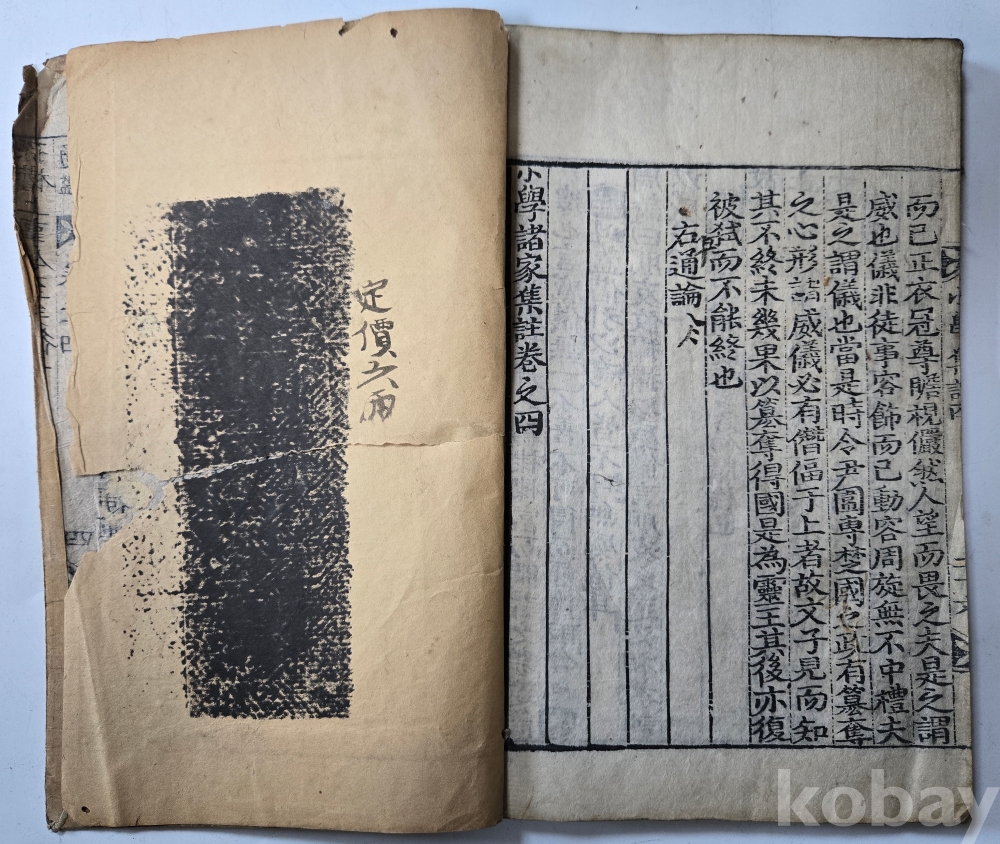 而已正衣冠尊瞻視儼然人望而畏之夫是之謂
威也儀非徒事容飾而已動容周旋無不中禮夫
是之謂儀也當是時令尹圍專楚國之政有簒奪
之心形諸威儀必有僭偪于上者故文子見而知
其不終未幾果以簒奪得國是為靈王其後亦復
被弑而不能終也
右通論
小學諸家集註卷之四
定價六兩
kobay